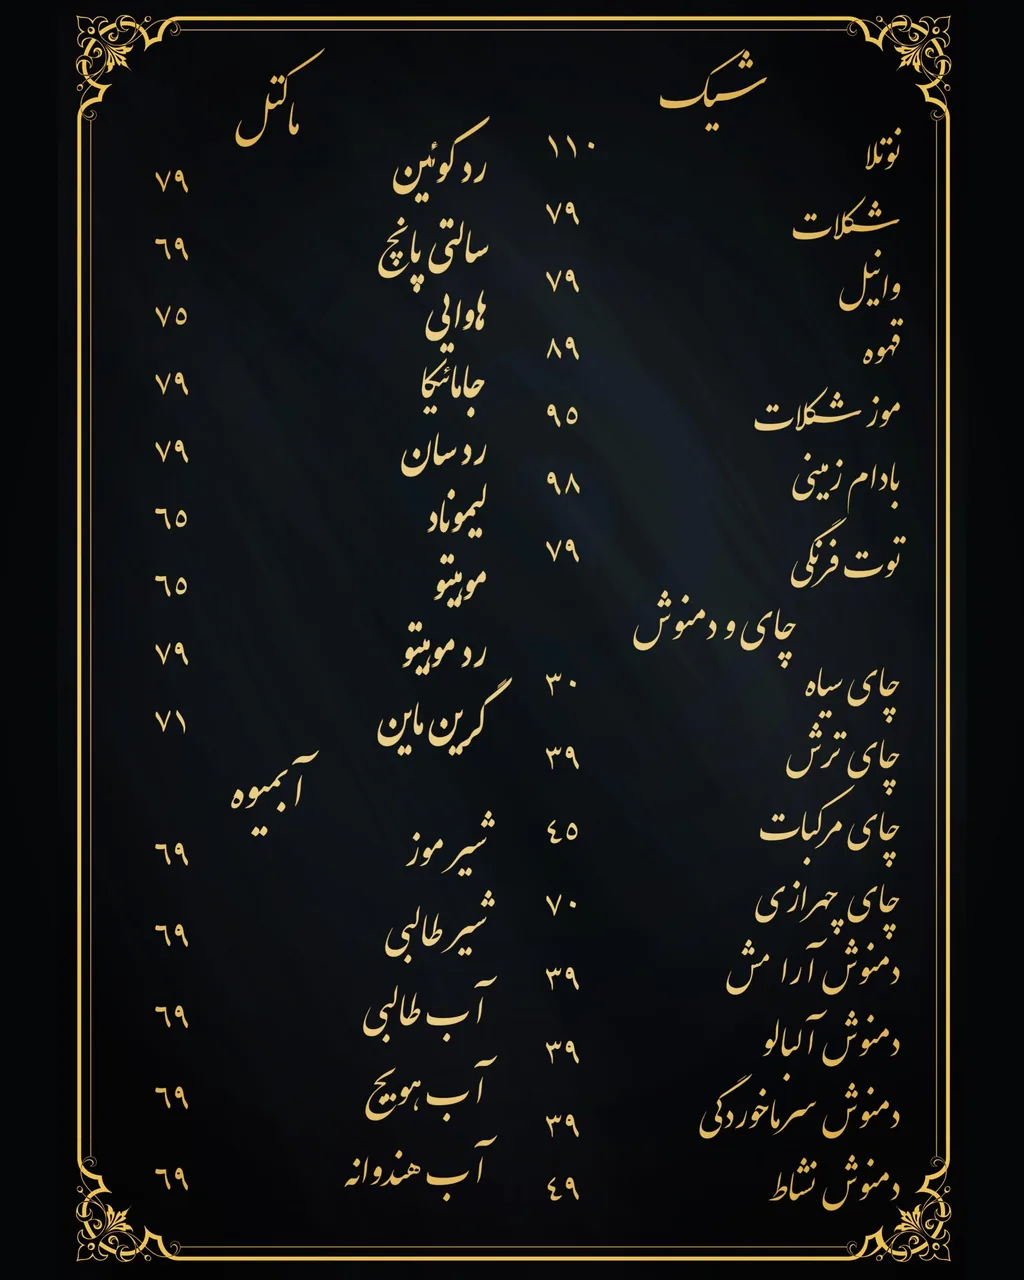 شیک
نوتلا ۱۱۰
شکلات ۷۹
وانیل ۷۹
قهوه ۸۹
موز شکلات ۹٥
بادام زمینی ۹۸
توت فرنگی ۷۹
چای و دمنوش
چای سیاه ۳۰
چای ترش ۳۹
چای مرکبات ٤٥
چای چهرازی ۷۰
دمنوش آرا مش ۳۹
دمنوش آلبالو ۳۹
دمنوش سرماخوردگی ۳۹
دمنوش نشاط ٤۹
ماکتل
رد کوئین ۷۹
سالتی پانچ ٦۹
هاوایی ۷٥
جامائیکا ۷۹
رد سان ۷۹
لیموناد ٦٥
موهیتو ٦٥
رد موهیتو ۷۹
گرین ماین ۷۱
آبمیوه
شیر موز ٦۹
شیر طالبی ٦۹
آب طالبی ٦۹
آب هویج ٦۹
آب هندوانه ٦۹